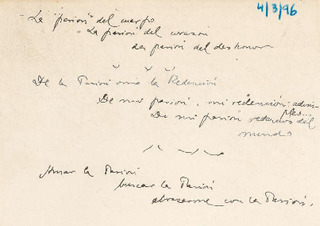 4/3/96
- La "pasión" del cuerpo
- La pasión del corazón
La pasión del deshonor
De la Pasión vino la Redención
De mi pasión, mi redención: además
De mi pasión redención del
mundo
Amar la Pasión
buscar la Pasión
abrazarme con la Pasión.